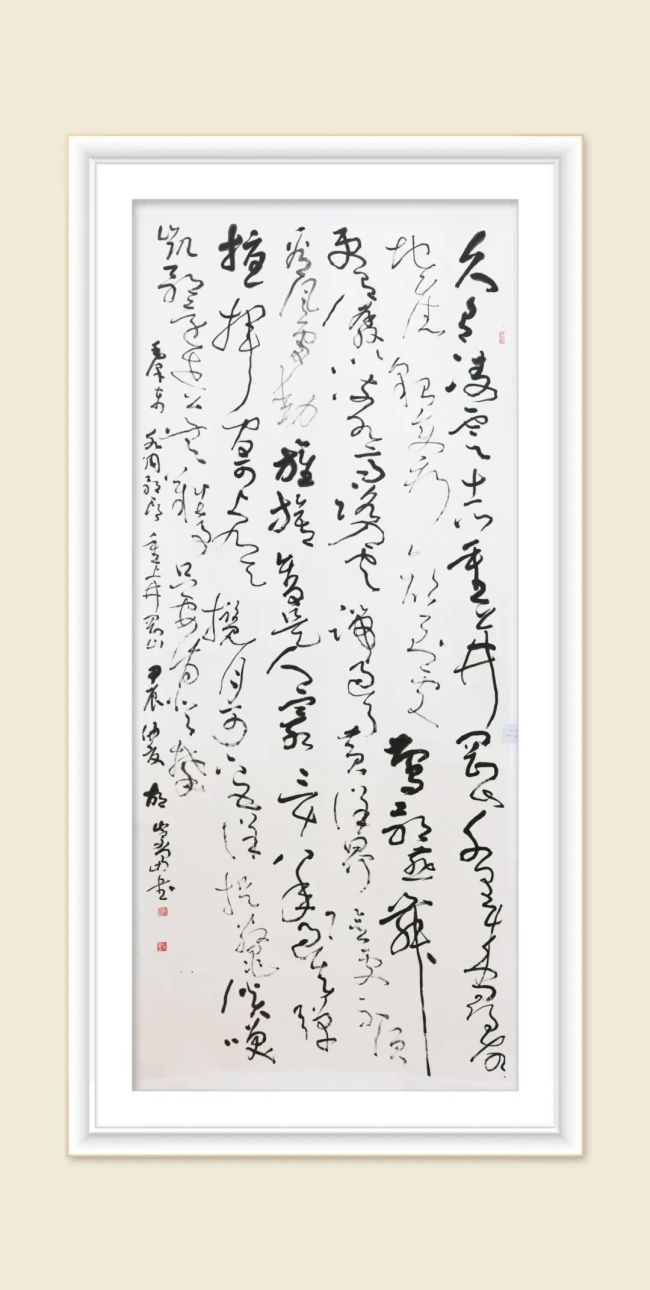 久有凌云志重上井冈山千里来寻故
地旧貌变新颜到处莺歌燕舞
更有潺潺流水高路入云端过了黄洋界险处不须
看风雷动旌旗奋是人寰三十八年过去弹
指一挥间可上九天揽月可下五洋捉鳖谈笑
凯歌还世上无难事只要肯登攀
毛泽东 水调歌头 重上井冈山 甲辰 仲夏 胡 山书